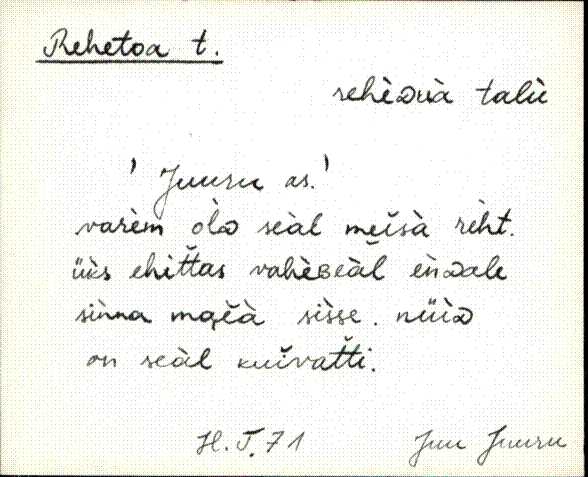 Rehetoa t.
rehèᴅùà talù
' Juuru as.'
varèm òlᴅ seàl meìsà rèht.
üks ehittas vahèʙeàl èǹᴅale
sìnna maeà sìsse. nüìᴅ
on seàl kuìvatti.
H. T. 71 Juu Juuru